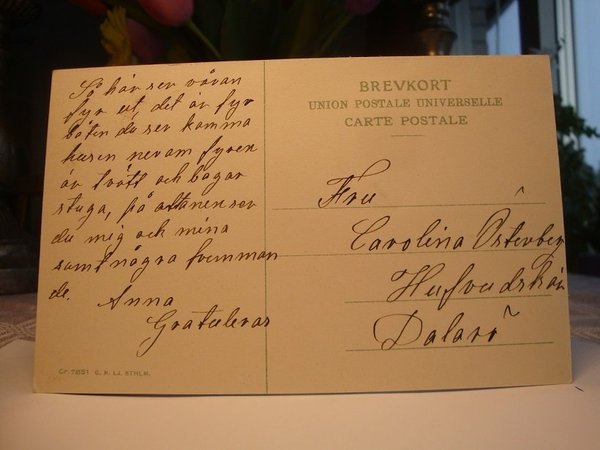 Så här ser våran
fyr ut, det är fyr
båten du ser komma
husen nevam fyren
är tvått och bagar
stuga, på altanen ser
du mig och mina
samt några fremman
de. Anna
Gratuleras
BREVKORT
UNION POSTALE UNIVERSELLE
CARTE POSTALE
Fru
Carolina Österberg
Hufvudskär
Dalarö
G. N. LJ. STHLM.